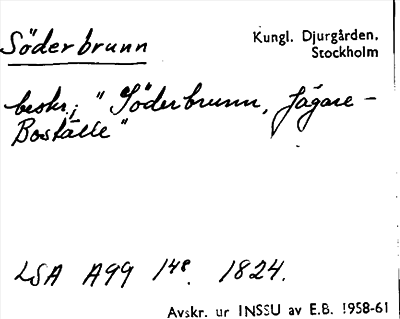 Söderbrunn
Kungl. Djurgården.
Stockholm
beskr.; "Söderbrunn, Jägare-
Boställe"
LSA A99 148. 1824.
Avskr. ur INSSU av E.B. 1958-61